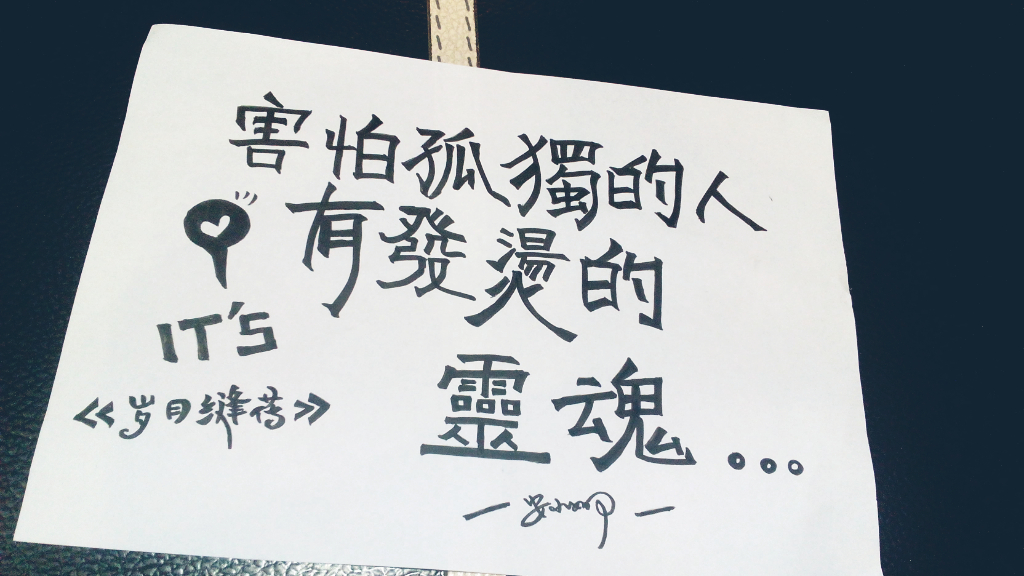 害怕孤獨的人
有發燙的
靈魂...
IT'S
《岁月缝荐》